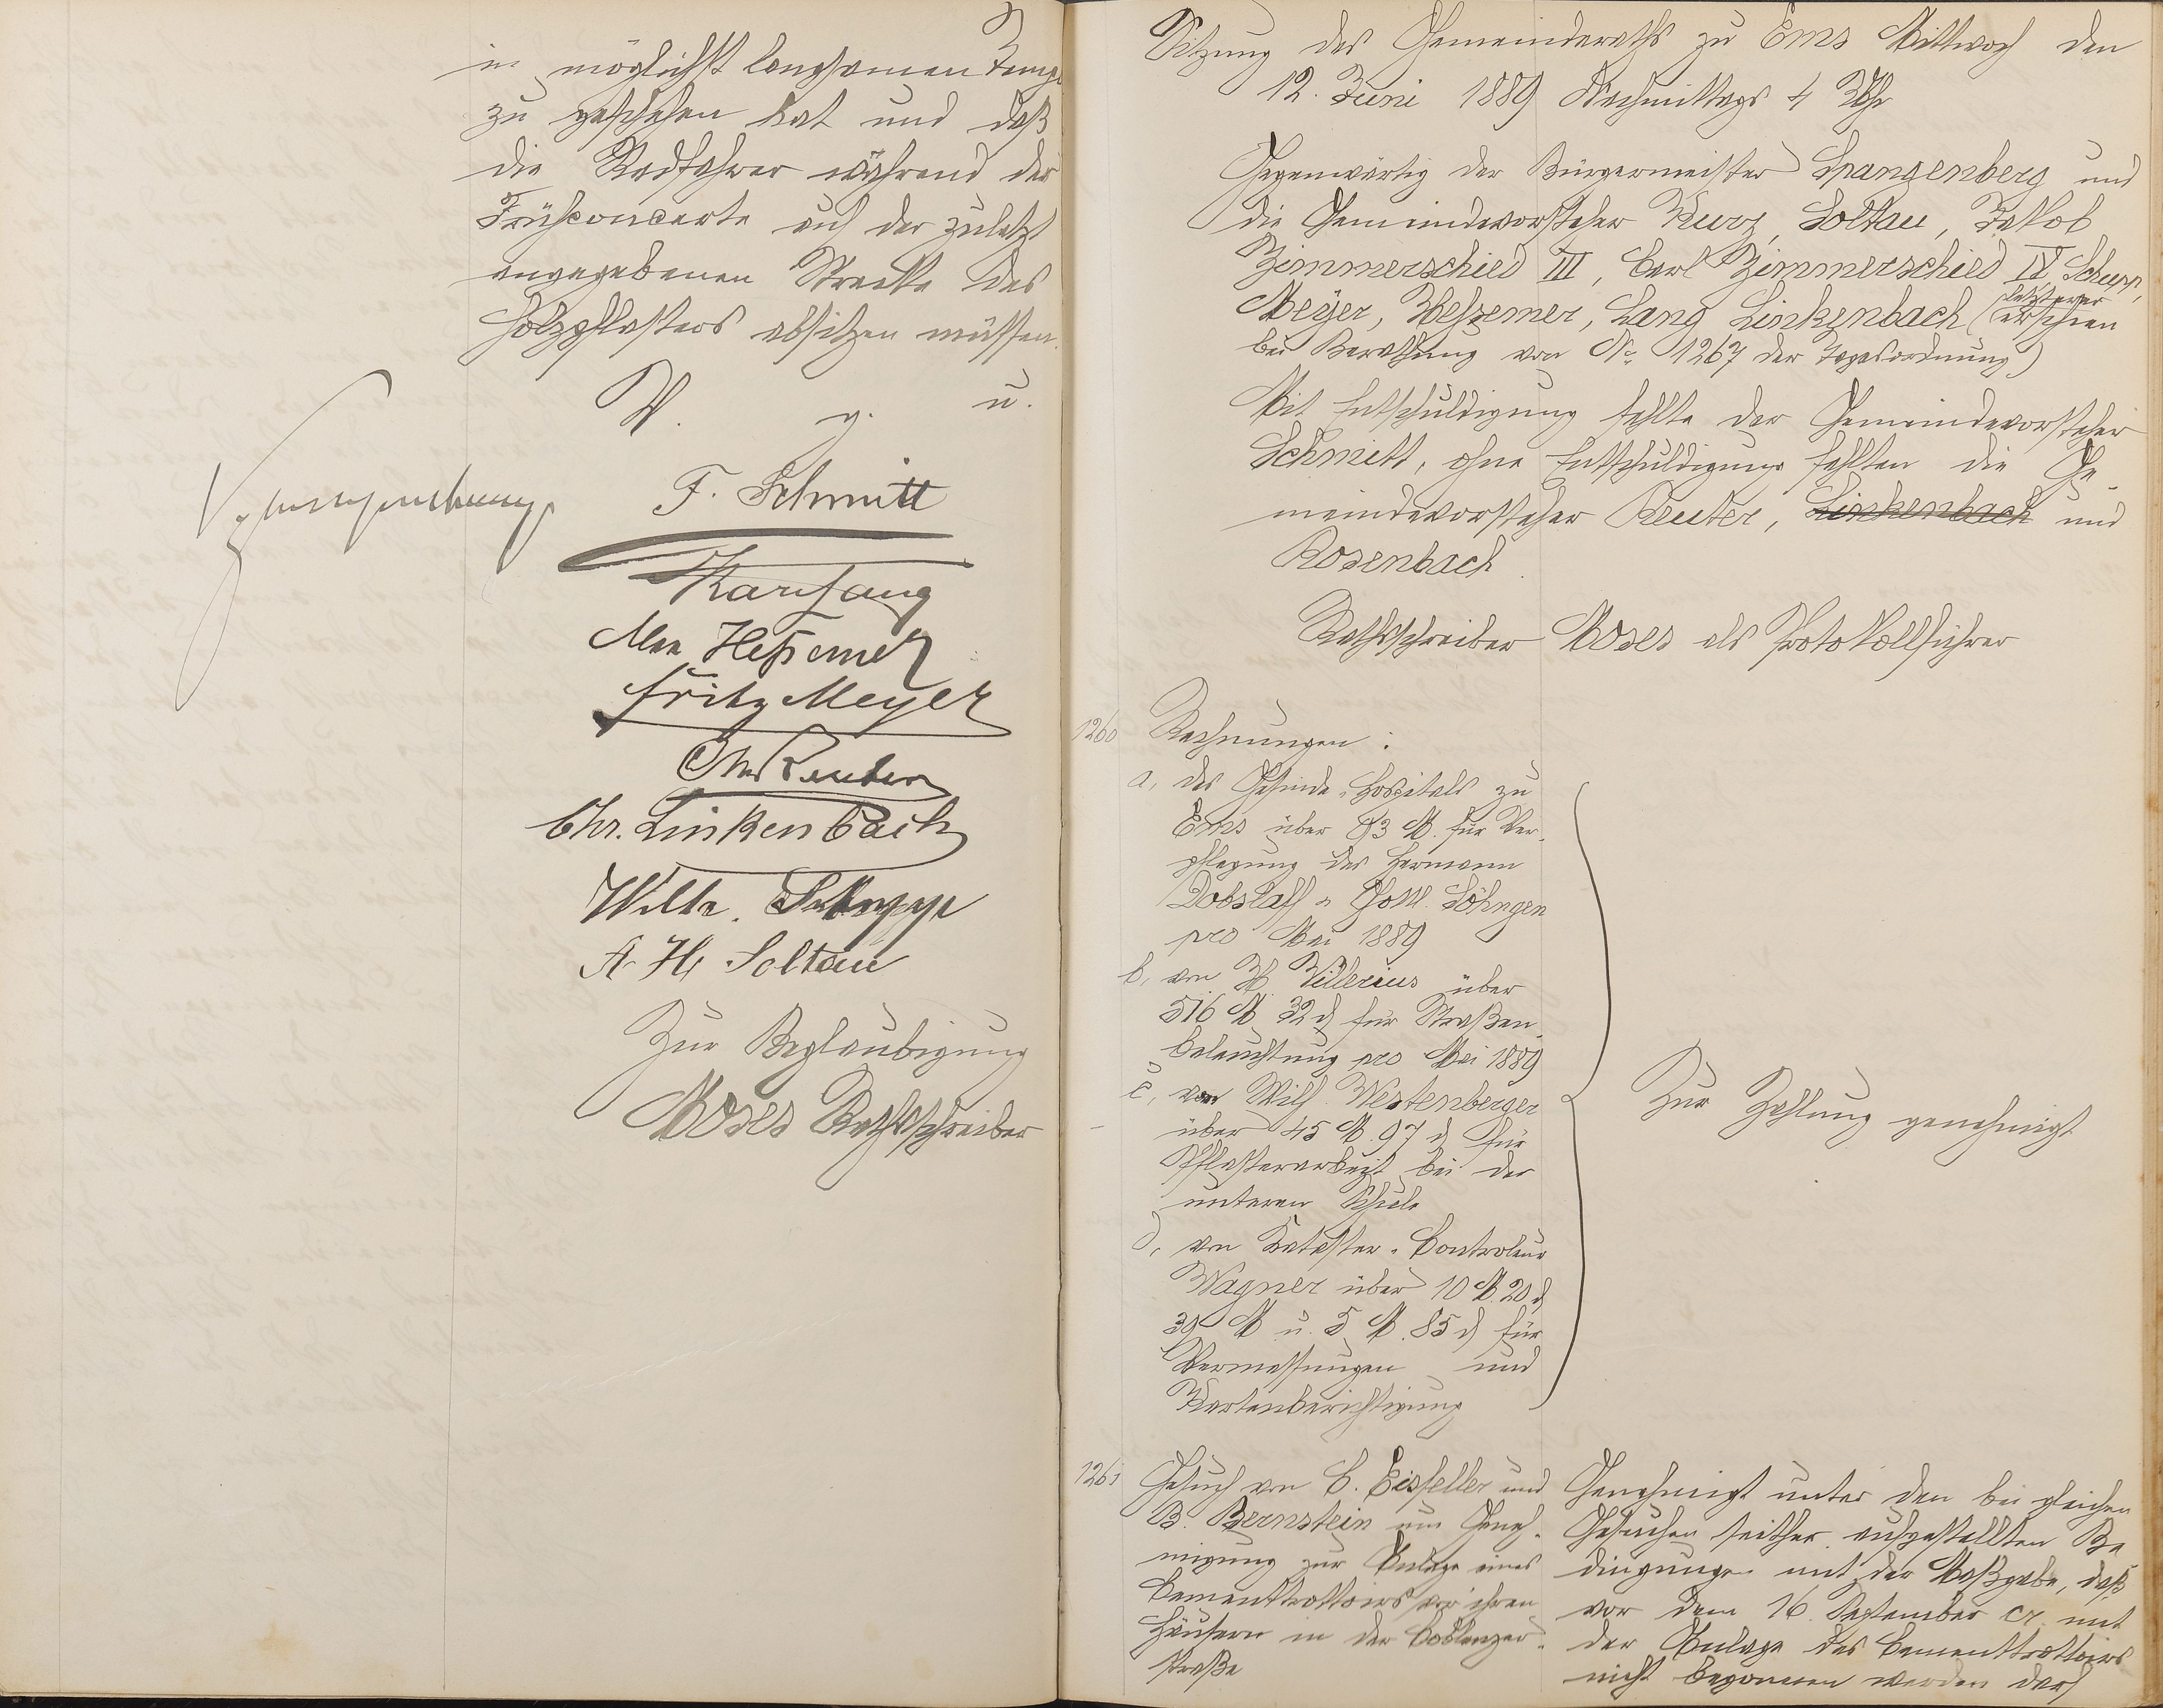 in möglichst langsamen Tempo
zu geschehen hat und daß
die Radfahrer während der
Frühconcerte auf der zuletzt
angegebenen Strecke des
Holzpflasters absitzen müssen.
V. g. u.
Spangenberg
F. Schmitt
Karl Lang
Alex Heßemer
Fritz Meyer
Chr Reuter
Chr. Linkenbach
Wilh. Schupp
A. H. Soltau
Zur Beglaubigung
Moses Rathsschreiber
Sitzung des Gemeinderaths zu Ems Mittwoch den
12. Juni 1889 Nachmittags 4 Uhr
Gegenwärtig der Bürgermeister Spangenberg und
die Gemeindevorsteher Kurz, Soltau, Jakob
Zimmerschied III, Carl Zimmerschied IV, Schupp,
Meyer, Heßemer, Lang Linkenbach (letzterer erschien
bei Berathung von No. 1267 der Tagesordnung)
Mit Entschuldigung fehlte der Gemeindevorsteher
Schmitt, ohne Entschuldigung fehlten die Ge-
meindevorsteher Reuter, Linkenbach und
Rosenbach.
Rathsschreiber Moses als Protokollführer
1260 Rechnungen:
a, des Gesinde-Hospitals zu
Ems über 83 M. für Ver-
pflegung des Hermann
Dobslaff u. Gottl. Söhngen
pro Mai 1889
b, von H Villerius über
516 M 32 d für Straßen-
beleuchtung pro Mai 1889
c, von Wilh. Westenberger
über 45 M. 97 d für
Pflasterarbeit bei der
unteren Schule
d, von Kataster-Controleur
Wagner über 10 M. 20 d
39 M u. 5 M. 85 d für
Vermessungen und
Kartenberichtigung
Zur Zahlung genehmigt
1261 Gesuch von C. Eisfeller und
B. Bernstein um Geneh-
migung zur Anlage eines
Cementtrottoirs vor ihren
Häusern in der Coblenzer-
straße
Genehmigt unter den bei gleichen
Gesuchen seither aufgestellten Be-
dingungen mit der Maßgabe, daß
vor dem 16. September cr. mit
der Anlage des Cementtrottoirs
nicht begonnen werden darf